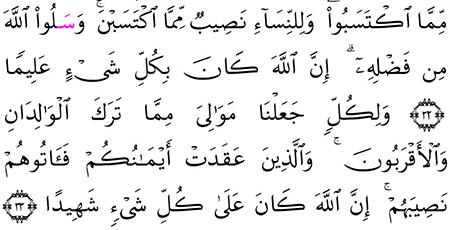 مِّمَّا ٱكۡتَسَبُواْۖ وَلِلنِّسَآءِ نَصِيبٞ مِّمَّا ٱكۡتَسَبۡنَۚ وَسَلُواْ ٱللَّهَ
مِن فَضۡلِهِۦٓۚ إِنَّ ٱللَّهَ كَانَ بِكُلِّ شَيۡءٍ عَلِيمٗا
۝٣٢ وَلِكُلّٖ جَعَلۡنَا مَوَٰلِيَ مِمَّا تَرَكَ ٱلۡوَٰلِدَانِ
وَٱلۡأَقۡرَبُونَۚ وَٱلَّذِينَ عَٰقَدَتۡ أَيۡمَٰنُكُمۡ فَـَٔاتُوهُمۡ
نَصِيبَهُمۡۚ إِنَّ ٱللَّهَ كَانَ عَلَىٰ كُلِّ شَيۡءٖ شَهِيدًا ۝٣٣